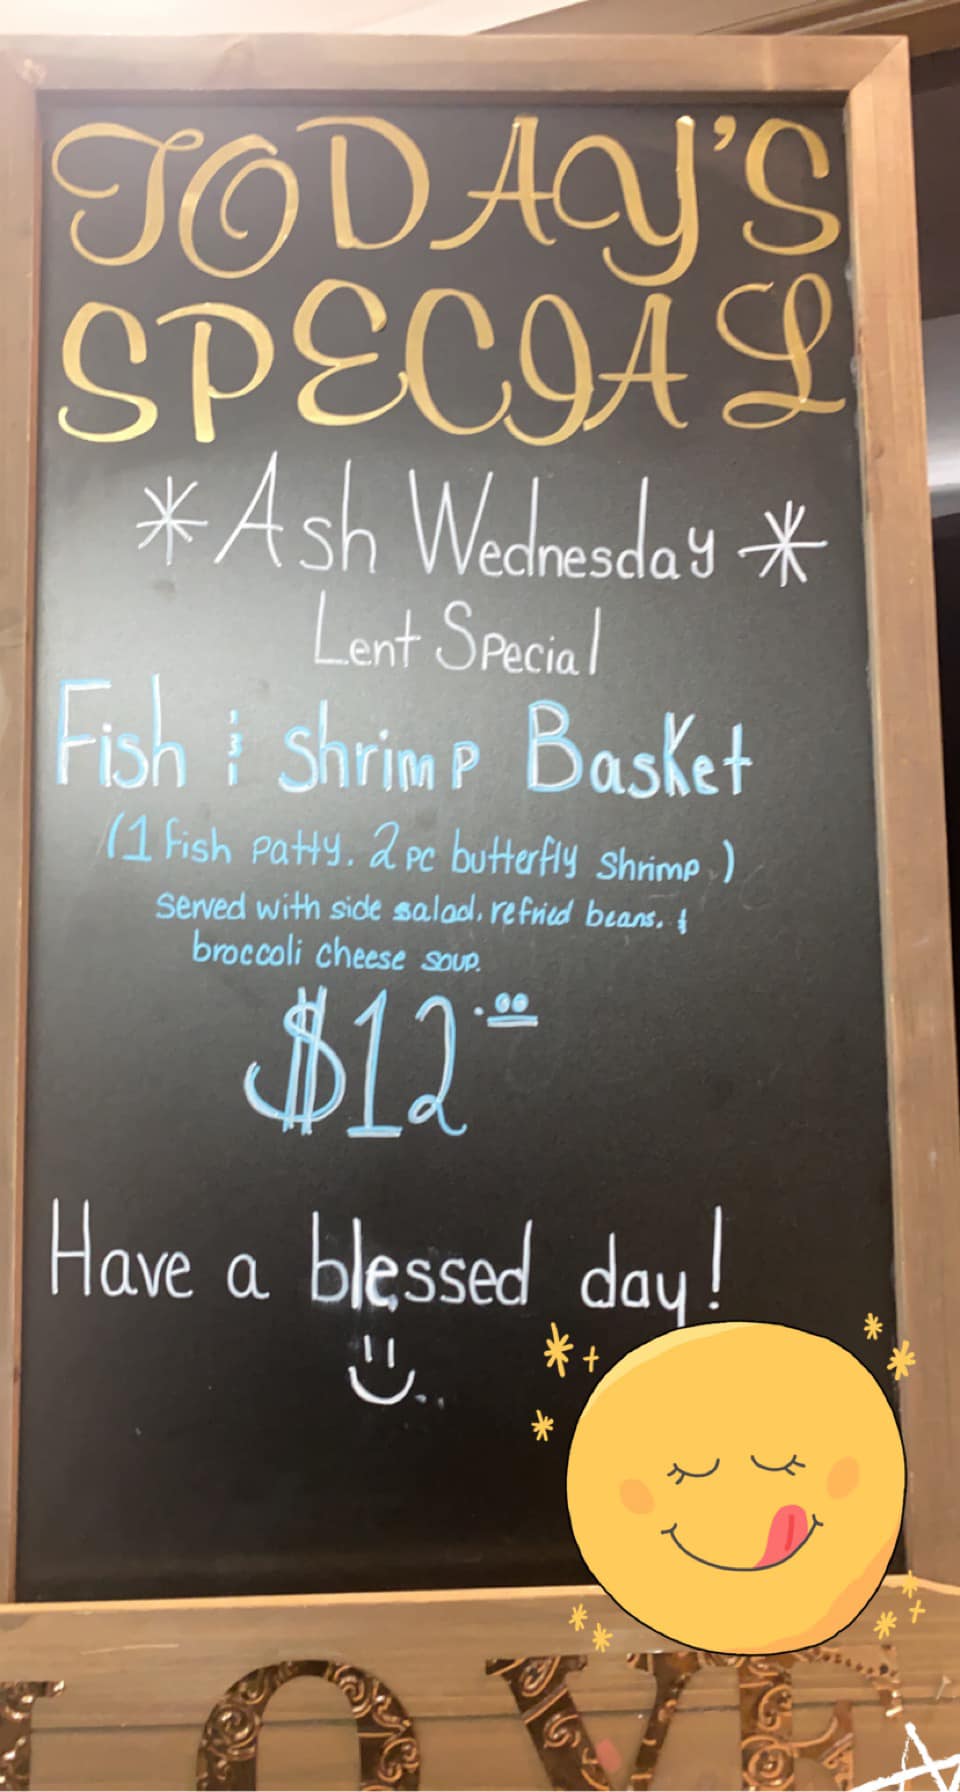 TODAY'S
SPECIAL
*Ash Wednesday*
Lent Special
Fish & Shrimp Basket
(1 fish patty. 2 pc butterfly shrimp.)
served with side salad, refried beans. &
broccoli cheese soup.
$12.00
Have a blessed day!
LOVE